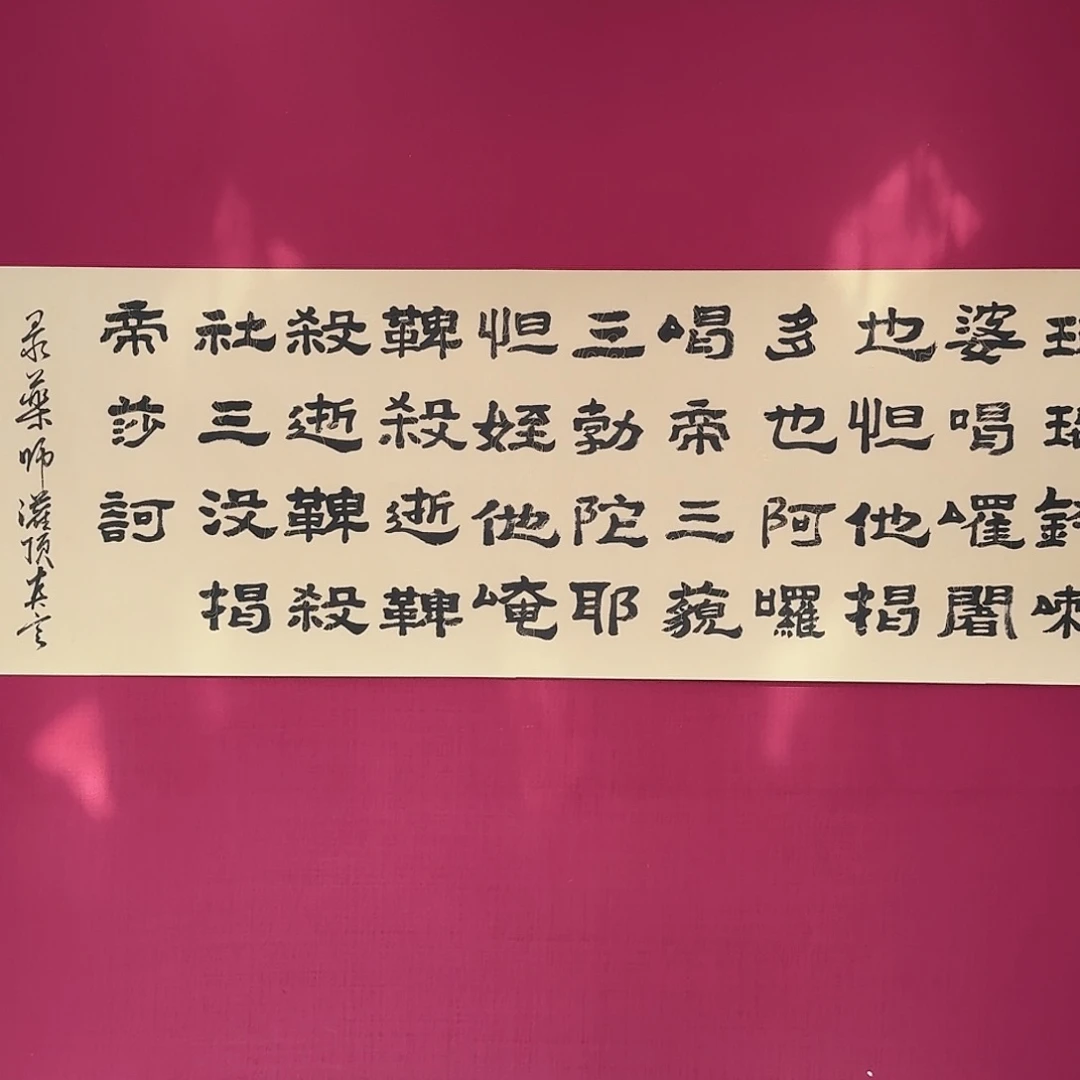 婆喝囉闍
也怛他揭
多也阿囉
喝帝三藐
三勃陀耶
怛姪他唵
鞞殺逝鞞
殺逝鞞殺
社三没揭
帝莎訶
录藥師灌頂真言